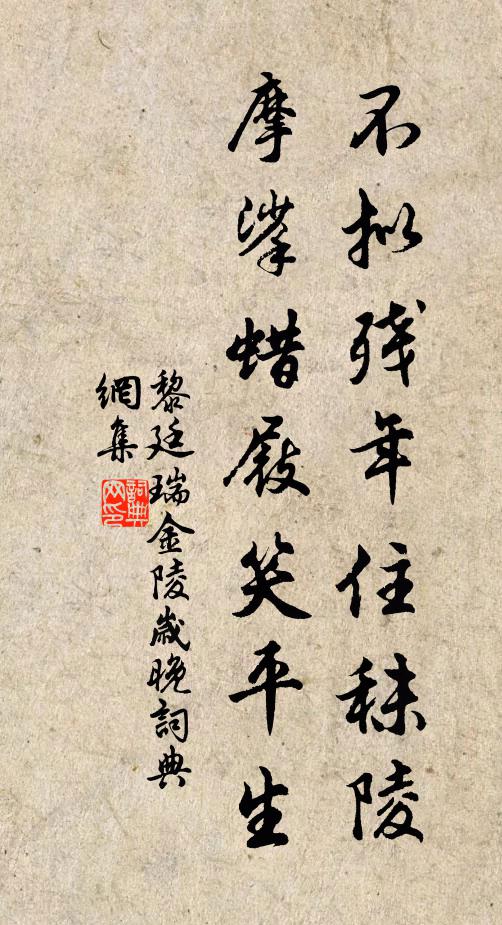 不拟残年住秣陵
摩挲蜡屐笑平生
黎廷瑞金陵歲晚詞典
網集
詞典
网印